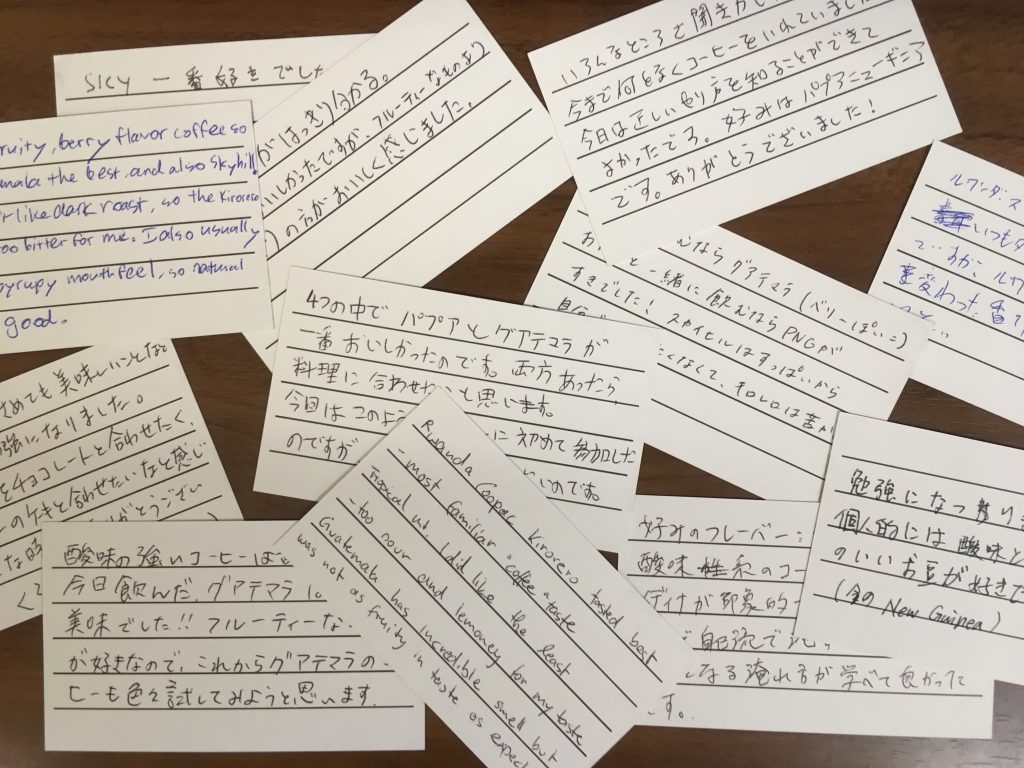 SKY 一番好きでした
がはっきり分かる。
いしかったですが、フルーティーなものより
の方がおいしく感じました。
いろんなところで聞きかじ
今まで何となくコーヒーをいれていました
今日は正しいやり方を知ることができて
よかったです。好みはパプアニューギニア
です。ありがとうございました!
ruity, berry flavor coffee so
mala the best, and also skyhill!
r like dark roast, so the Kirorero
too bitter for me. I also usually
syrupy mouthfeel, so natural
good.
ルワンダ、ス
いつも
ですが、ルワ
変わった香り
むならグアテマラ(ベリーぱい:)
と一緒に飲むならPNGが
すきでした!スカイヒルはすっぱいから
くなくて、キロレロは苦
4つの中でパプアとグアテマラが
一番おいしかったのです。両方あったら
料理に合わせ と思います。
今日はこのよう に初めて参加した
のですが いのです。
さめても美味しいことなど
強になりました。
をチョコレートと合わせたく、
ーのケーキと合わせたいなと感じ
がとうござい
な時
酸味の強いコーヒーは
今日飲んだ、グアテマラ
美味でした!!フルーティーな
が好きなので、これからグアテマラの
ヒーも色々試してみようと思います。
Rwanda Coopac Kirorero tasted best
- most familiar "coffee" taste
Tropical ut. I did like the least
- too sour and lemoney for my taste
Guatemala has incredible smell but
was not as fruity in taste as expect
好みのフレーバー:
酸味 系のコー
が印象的
になる淹れ方が学べて良かった
です。
勉強になつ
個人的には酸味と
のいいお豆が好きで
(今の New Guinea)